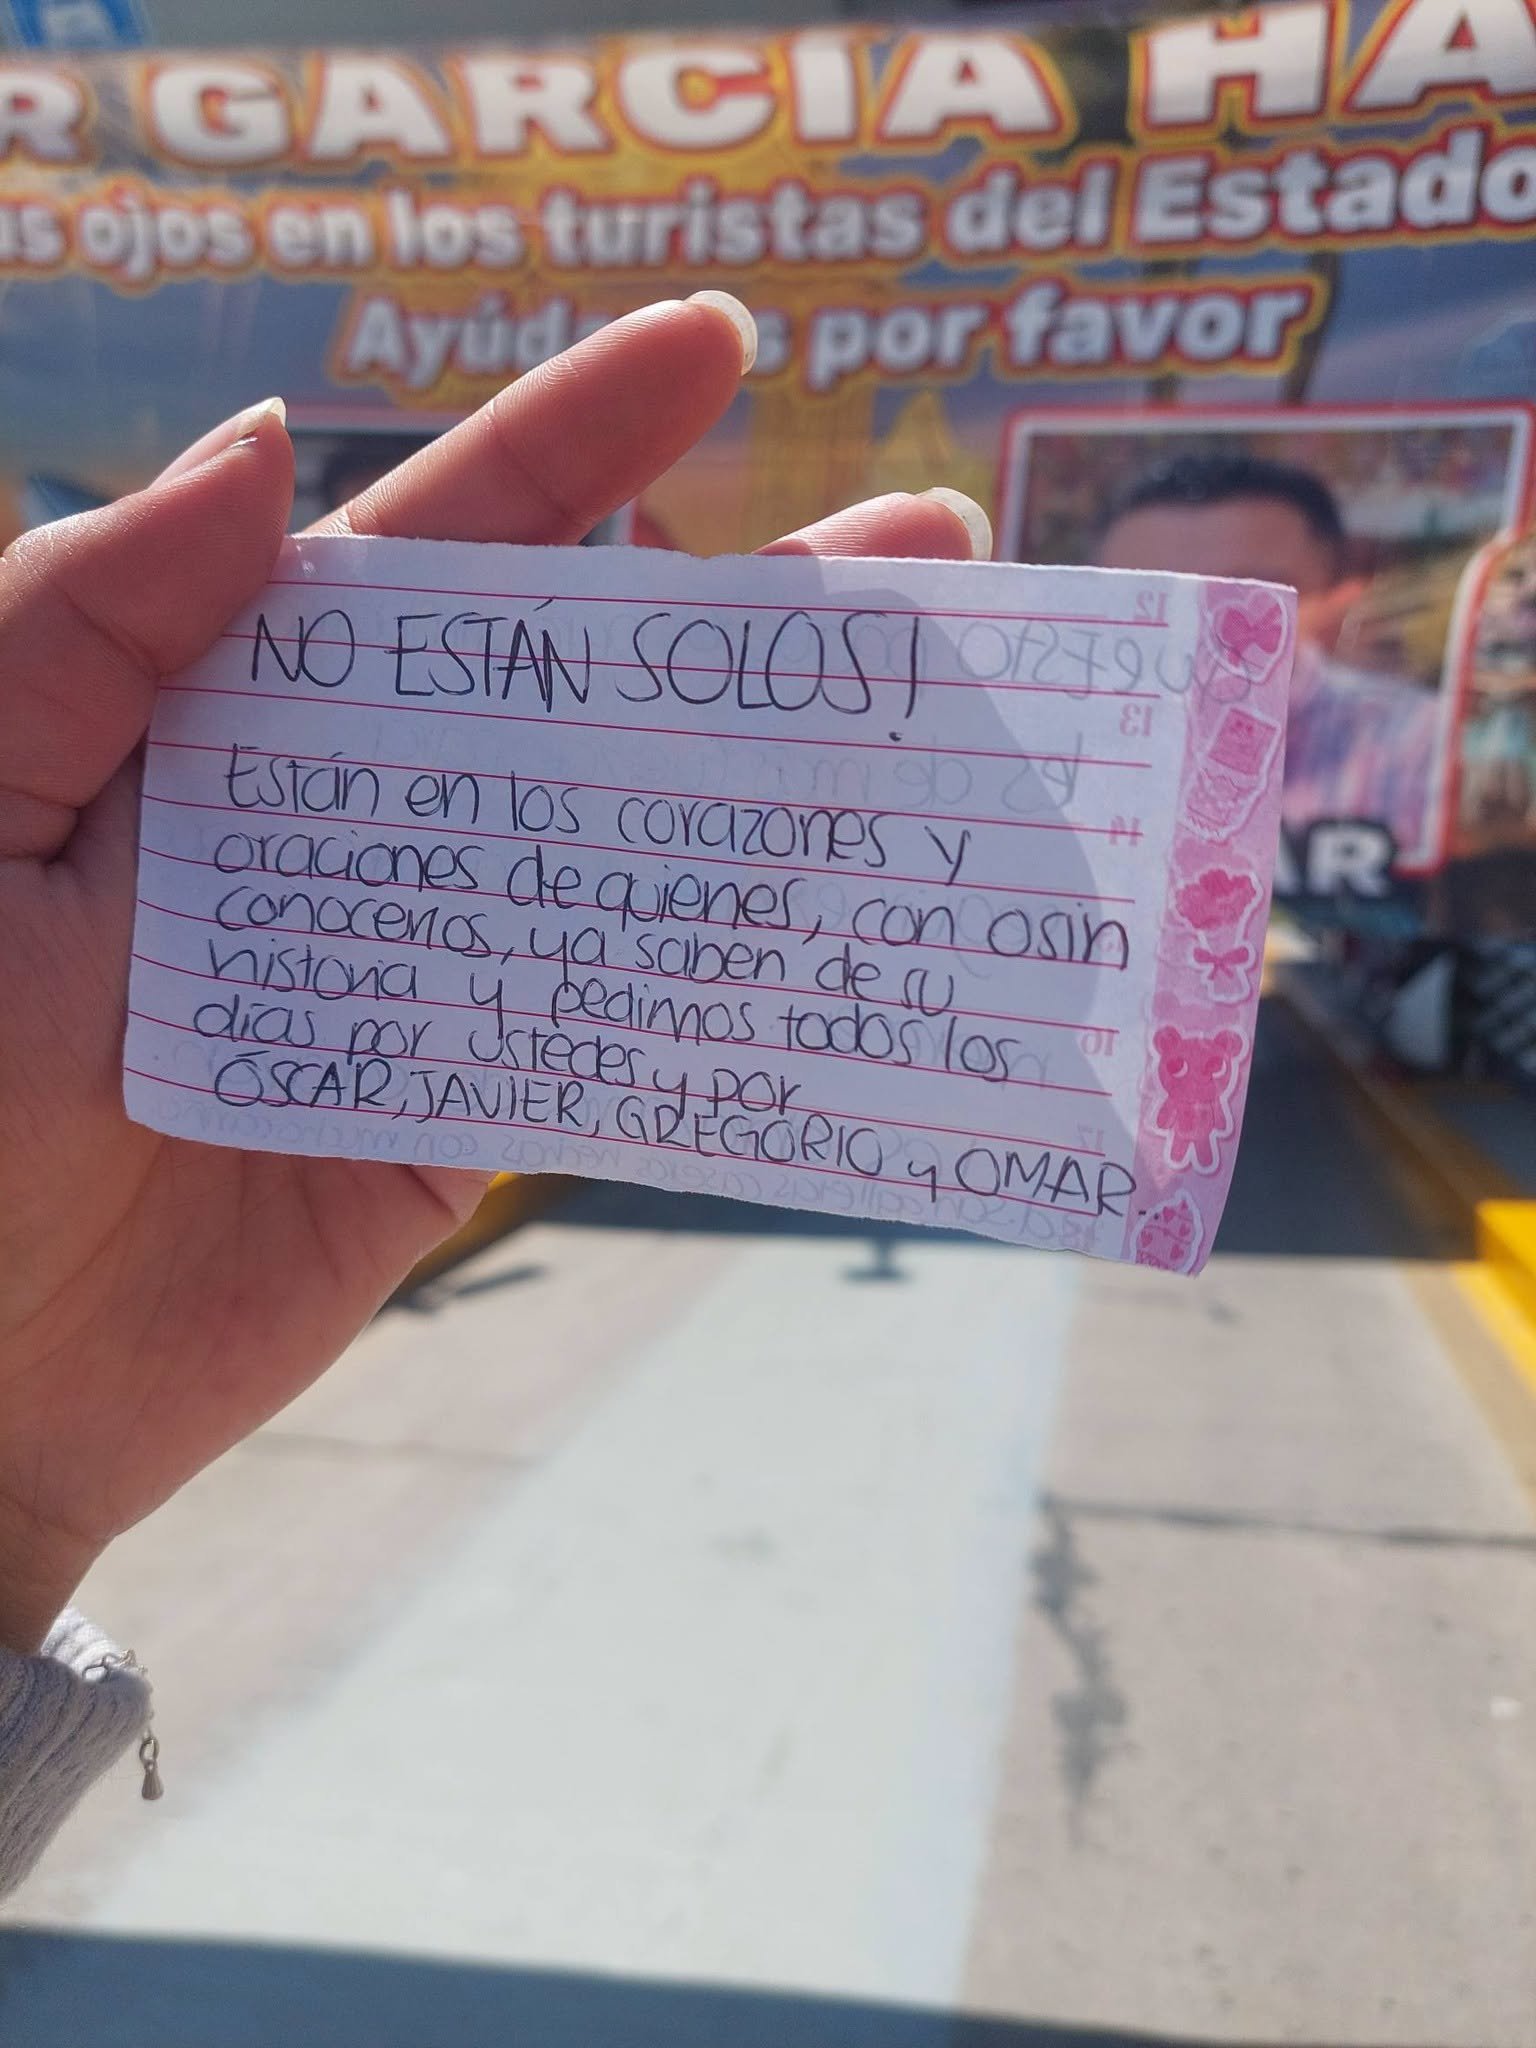 R GARCÍA HA
us ojos en los turistas del Estado
por favor
NO ESTÁN SOLOS!
Están en los corazones y
oraciones de quienes, con o sin
conocerlos, ya saben de su
historia y pedimos todos los
días por ustedes y por
ÓSCAR, JAVIER, GREGORIO y OMAR...
12
13
14
16
17
AR